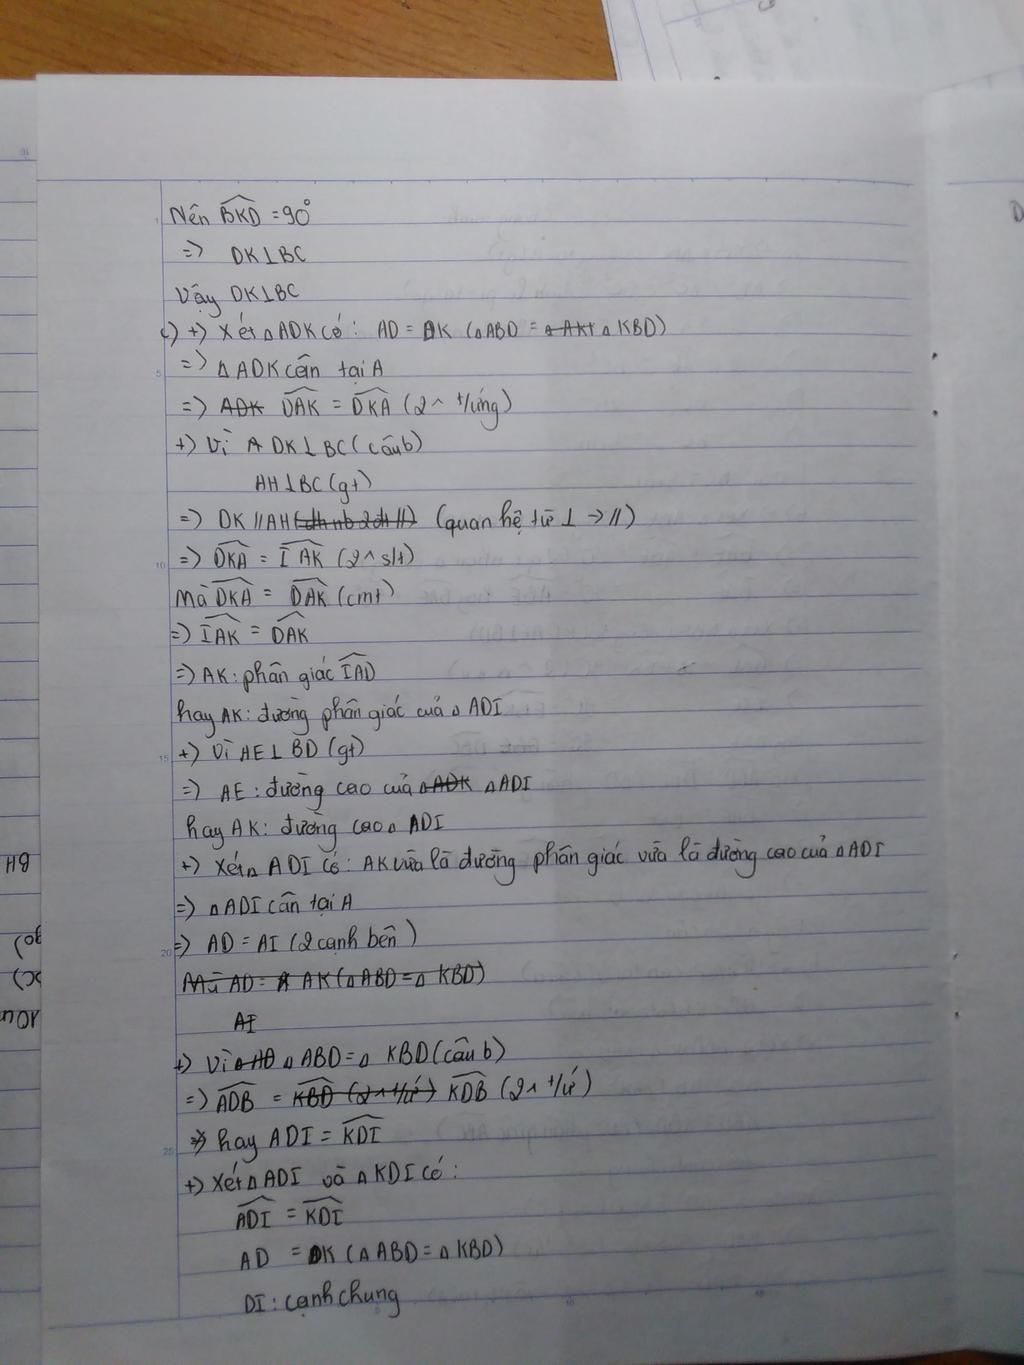 Nên BKD = 90°
=> DK⊥BC
Vậy DK⊥BC
c) +) Xét △ADK có: AD = DK (△ABD = △AKI △KBD)
=> △ADK cân tại A
=> ADK DAK = DKA (2^ t/ứng)
+) Vì A DK⊥BC (câu b)
AH⊥BC (gt)
=> DK // AH (dh nb 2 đt //) (quan hệ từ ⊥ -> //)
=> DKA = IAK (2^ slt)
Mà DKA = DAK (cmt)
=> IAK = DAK
=> AK: phân giác IAD
hay AK: đường phân giác của △ ADI
+) Vì AE⊥BD (gt)
=> AE: đường cao của △ADK △ADI
hay AK: đường cao △ ADI
+) Xét △ ADI có: AK vừa là đường phân giác vừa là đường cao của △ADI
=> △ADI cân tại A
=> AD = AI (2 cạnh bên)
Mà AD = A AK (△ABD = △ KBD)
AI
+) Vì △AD △ ABD = △ KBD (câu b)
=> ADB = KBD (2^ t/ứ) KDB (2^ t/ứ)
=> hay ADI = KDI
+) Xét △ADI và △KDI có:
ADI = KDI
AD = DK (△ABD = △KBD)
DI: cạnh chung
BH